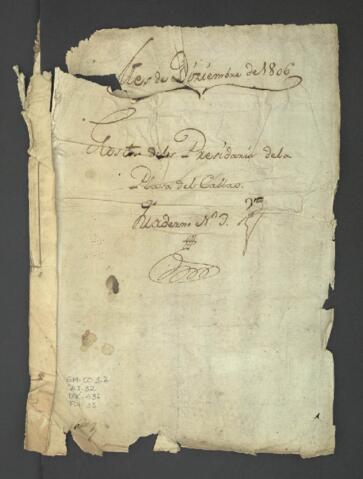 Mes de Diziembre de 1806
Gastos de los Presidarios de la
Plaza del Callao.
Quaderno Nº 3.
GM-CO 3.2